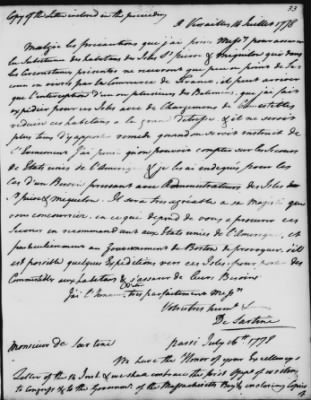 Copy of the Letter inclosed in the preceeding
33
A Versailles 14 Juillet 1778
Malgré les précautions que j'ai prises Mess.rs pour assurer
la Subsistance des habitans des Isles St pierre & Miquelon qui dans
les Circonstances présentes ne recevront que peu ou point de Se-
cours en vivres par le Commerce de France, il peut arriver
que l'interception d'un ou plusieurs des Batimens, que j'ai fait
expédier pour ces Isles avec des Chargemens de Comestibles
réduise ces habitans à la grande détresse & il ne seroit
plus tems d'y apporter remede quand on seroit instruit de
l'Evenement. J'ai pensé qu'on pouvoit compter sur les Secours
des Etats unies de l'Amerique & je les ai indiqués pour les
Cas d'un Besoin pressant aux Administrateurs des Isles de
St pierre & Miquelon. Il sera tres agréable a sa Majesté que
vous concourriez, en ce qui dépend de vous a procurer ces
Secours en recommandant aux Etats unies de l'Amerique, et
particulierement au Gouvernement de Boston de provoquer, s'il
est possible quelques Expeditions vers ces Isles, pour porter des
Comestibles aux habitans & s'assurer de leurs Besoins
J'ai l'honneur d'etre tres parfaitement Mess.rs
Votre tres humb &
De Sartine
Monsieur de Sartine
passi July 16th 1778
We have the Honor of your Excellencys
Letter of the 14 Inst & we shall embrace the first opp.y of writing
to Congress & to the Governm.t of the Massachusetts Bay & inclosing Copies